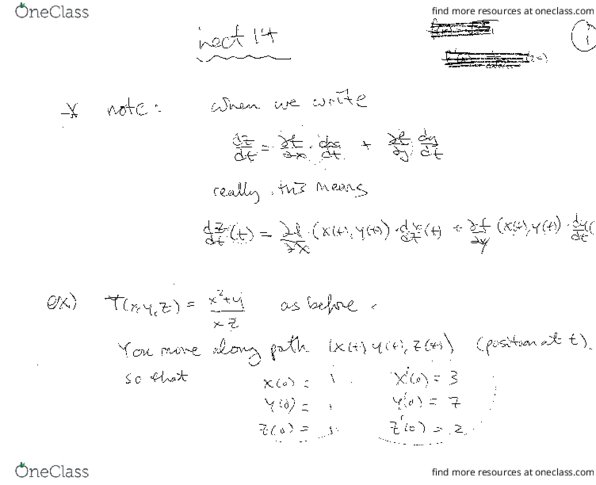 OneClass
find more resources at oneclass.com
Lect 14
1
* note: when we write
dz/dt = ∂f/∂x · dx/dt + ∂f/∂y dy/dt
really, this means
dz/dt (t) = ∂f/∂x · (x(t), y(t)) · dx/dt (t) + ∂f/∂y (x(t), y(t)) · dy/dt (
ex) T(x,y,z) = x²+y / xz as before.
You move along path (x(t) y(t), z(t)) (position at t).
so that x(0) = 1 x'(0) = 3
y(0) = 1 y'(0) = 7
z(0) = 1 z'(0) = 2
OneClass
find more resources at oneclass.com